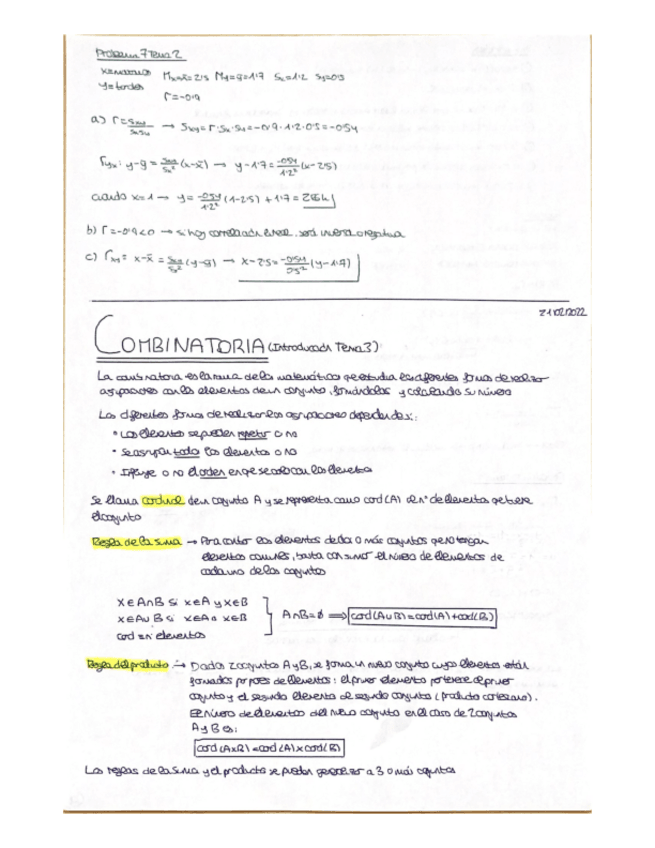 Problema 7 Tema 2
x=
y=bordes Mx=x̄=2'5 My=ȳ=1'7 Sx=1'2 Sy=0'5
r=-0'9
a) r=Sxy/SxSy → Sxy=r·Sx·Sy=-0'9·1'2·0'5=-0'54
ryx: y-ȳ=Sxy/Sx²(x-x̄) → y-1'7=-0'54/1'2²(x-2'5)
cuando x=1 → y=-0'54/1'2²(1-2'5)+1'7=
b) r=-0'9<0 → si hay correlación lineal, será inversa o negativa
c) rxy= x-x̄=Sxy/Sy²(y-ȳ) → x-2'5=-0'54/0'5²(y-1'7)
21/02/2022
COMBINATORIA (Introducción Tema 3)
La combinatoria es la rama de la matemática que estudia las diferentes formas de realizar
agrupaciones con los elementos de un conjunto, formándolas y calculando su número
Las diferentes formas de realizar las agrupaciones dependen de si:
• Los elementos se pueden repetir o no
• Se agrupan todos los elementos o no
• Influye o no el orden en que se colocan los elementos
Se llama cardinal de un conjunto A y se representa como card(A) al nº de elementos que tiene
el conjunto
Regla de la suma → Para contar los elementos de dos o más conjuntos que no tengan
elementos comunes, basta con sumar el número de elementos de
cada uno de los conjuntos
x∈A∩B si x∈A y x∈B
x∈A∪B si x∈A o x∈B
A∩B=∅ ⟹ card(A∪B)=card(A)+card(B)
card = nº elementos
Regla del producto → Dados 2 conjuntos A y B, se forma un nuevo conjunto cuyos elementos están
formados por pares de elementos: el primer elemento pertenece al primer
conjunto y el segundo elemento al segundo conjunto (producto cartesiano).
El número de elementos del nuevo conjunto en el caso de 2 conjuntos
A y B es:
card(AxB)=card(A)xcard(B)
Las reglas de la suma y el producto se pueden generalizar a 3 o más conjuntos